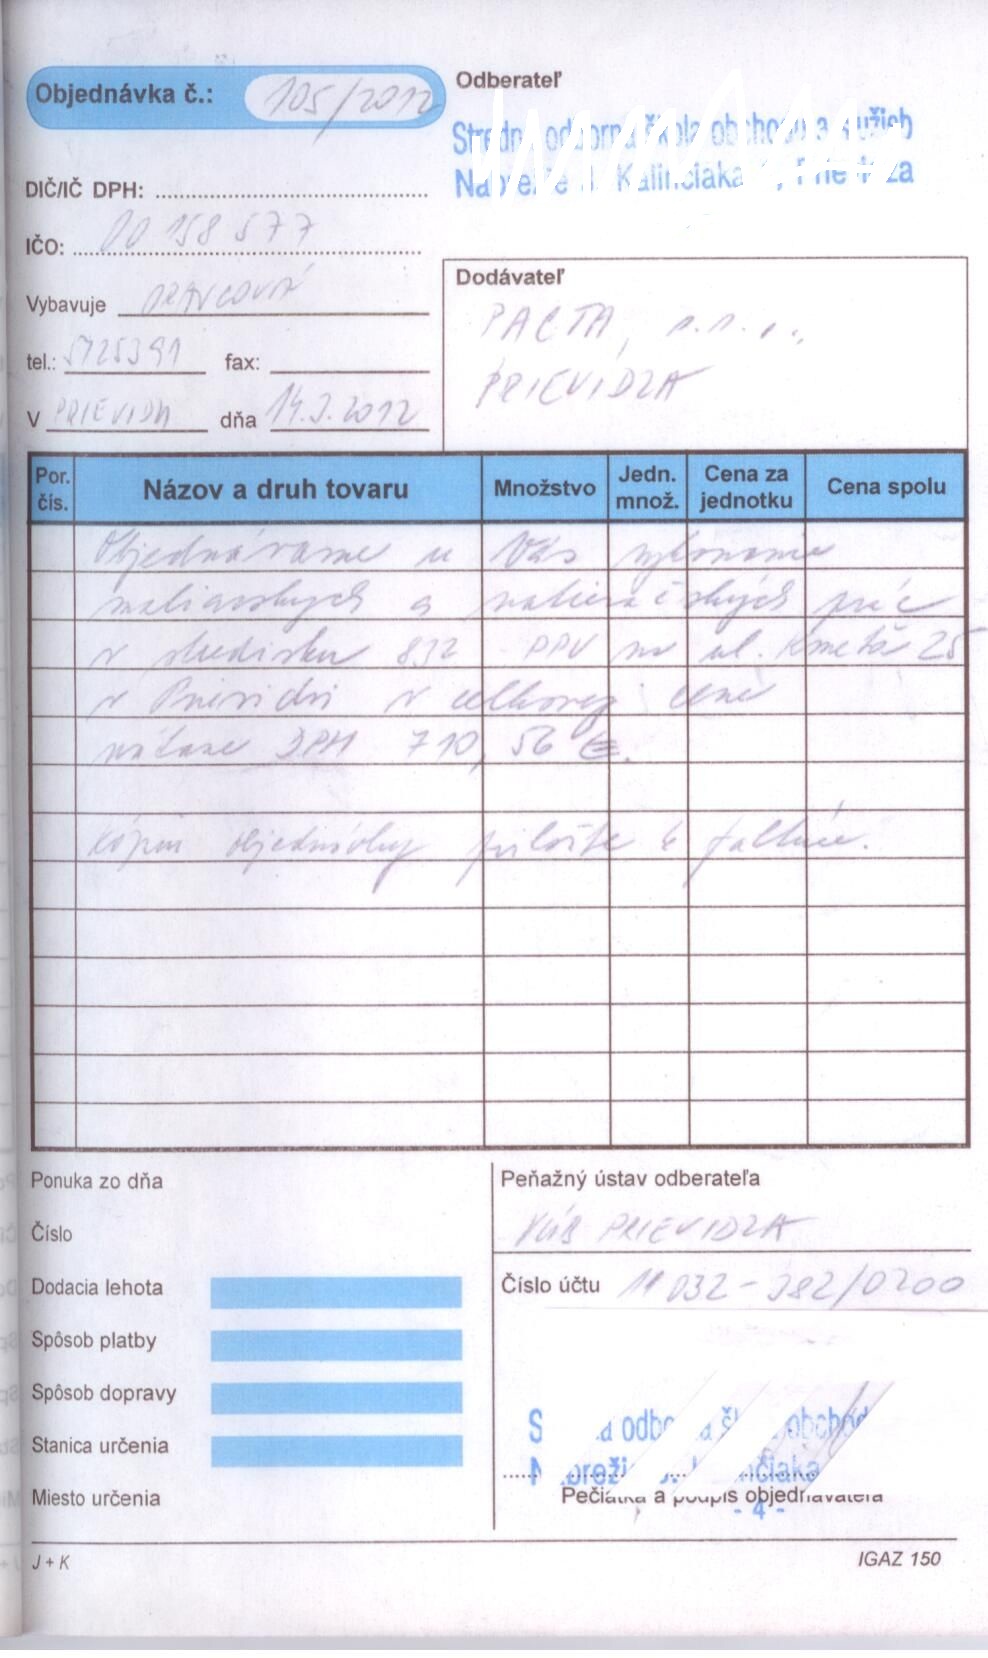 Objednávka č.: 105/2012
Odberateľ
Stredná odborná škola obchodu a služieb
Kalinčiaka
DIČ/IČ DPH:
IČO: 00 158 577
Vybavuje
tel.: 5425391 fax:
V PRIEVIDZI dňa 14.3.2012
Dodávateľ
PACTA, s.r.o.,
PRIEVIDZA
Por. čís.
Názov a druh tovaru
Množstvo
Jedn. množ.
Cena za jednotku
Cena spolu
Objednávame u Vás vykonanie
maliarskych a natieračských prác
v stredisku 832 PPV na ul. Kmeťa 25
v Prievidzi v celkovej cene
vrátane DPH 710,56 €.
Kópiu objednávky priložte k faktúre.
Ponuka zo dňa
Číslo
Dodacia lehota
Spôsob platby
Spôsob dopravy
Stanica určenia
Miesto určenia
Peňažný ústav odberateľa
VÚB PRIEVIDZA
Číslo účtu 11032-382/0200
Pečiatka a podpis objednávateľa
- 4 -
J + K
IGAZ 150